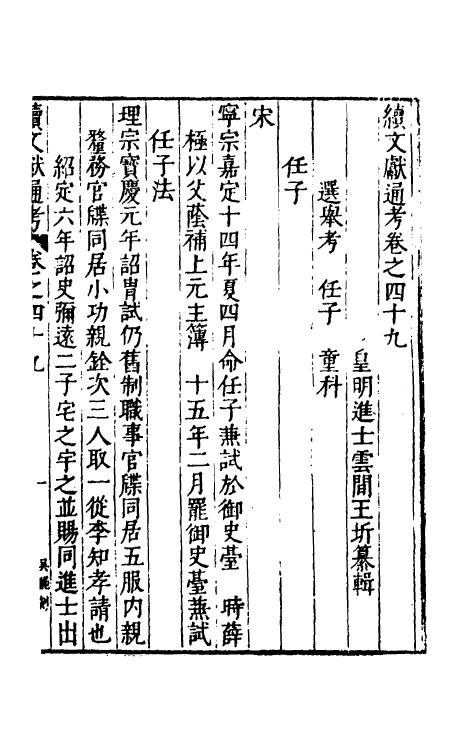 續文獻通考卷之四十九
皇明進士雲間王圻纂輯
選舉考 任子 童科
任子
宋
寧宗嘉定十四年夏四月命任子兼試於御史臺 時薛
極以父蔭補上元主簿 十五年二月罷御史臺兼試
任子法
理宗寶慶元年詔胄試仍舊制職事官牒同居五服內親
釐務官牒同居小功親銓次三人取一從李知孝請也
紹定六年詔史彌遠二子宅之宇之並賜同進士出
續文獻通考 卷之四十九 一